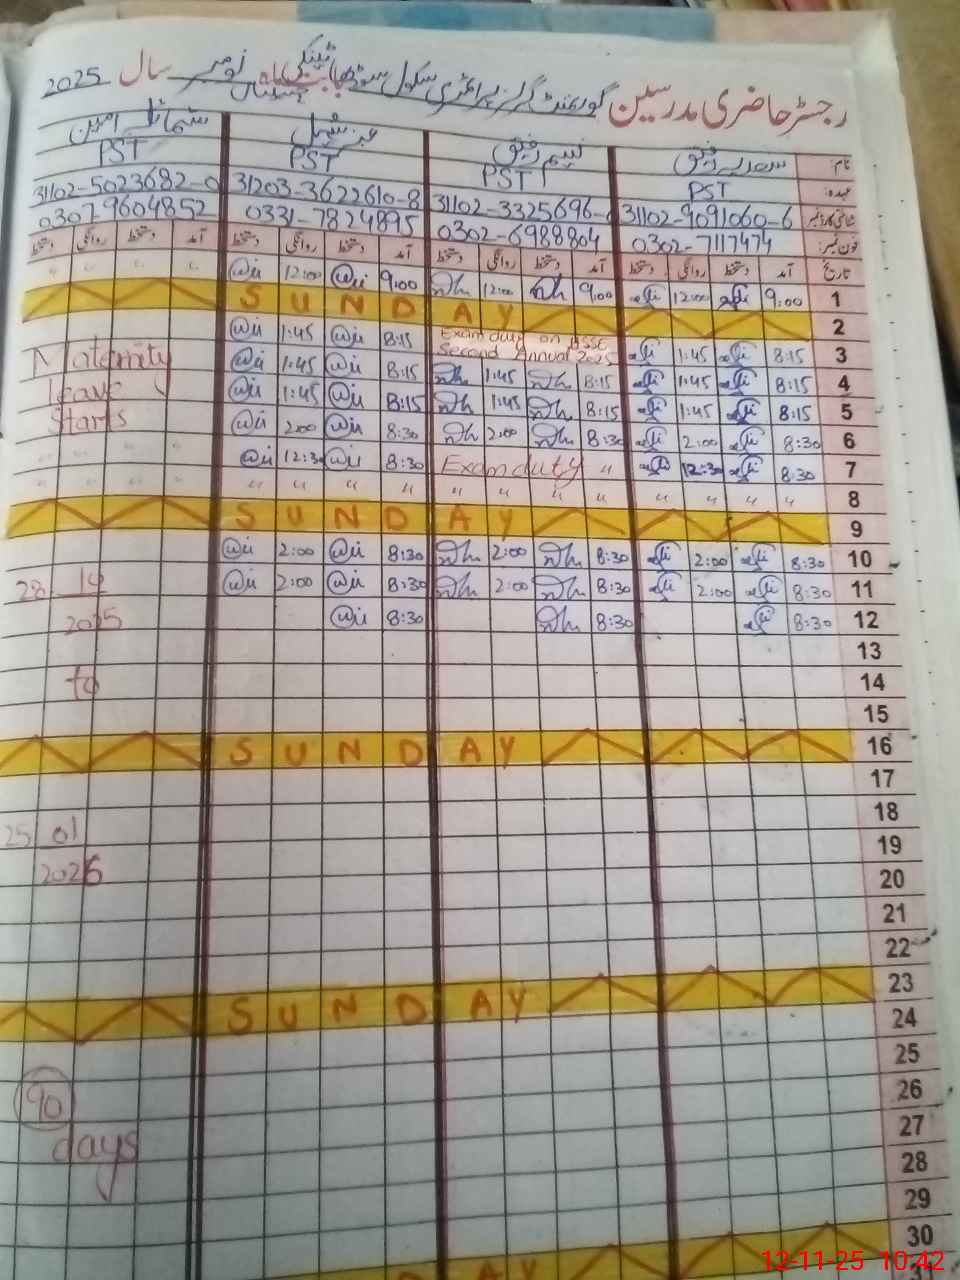 رجسٹر حاضری مدرسین گورنمنٹ گرلز پرائمری سکول ماہ نومبر سال 2025
نام: سعدیہ رفیق نسیم رفیق شمائلہ امین
عہدہ: PST PST PST PST
شناختی کارڈ نمبر 31102-9091060-6 31102-3325696- 31203-3622610-8 31102-5023682-0
فون نمبر: 0302-7117474 0302-6988804 0331-7824895 0307-9604852
تاریخ آمد دستخط روانگی دستخط آمد دستخط روانگی دستخط آمد دستخط روانگی دستخط آمد دستخط روانگی دستخط
1 9:00 12:00 9:00 12:00 9:00 12:00 " " " "
2 SUNDAY
3 8:15 1:45 Exam duty on Second Annual 2025 8:15 1:45
4 8:15 1:45 8:15 1:45 8:15 1:45 Maternity
5 8:15 1:45 8:15 1:45 8:15 1:45 leave
6 8:30 2:00 8:30 2:00 8:30 2:00 Starts
7 8:30 12:30 Exam duty " 8:30 12:30 " " " "
8 " " " " " " " " " " " " " " " "
9 SUNDAY
10 8:30 2:00 8:30 2:00 8:30 2:00
11 8:30 2:00 8:30 2:00 8:30 2:00 28
12 8:30 8:30 8:30 2025
13
14 to
15
16 SUNDAY
17
18
19 25 01
20 2026
21
22
23
24 SUNDAY
25
26
27 90
28 days
29
30
12-11-25 10:42